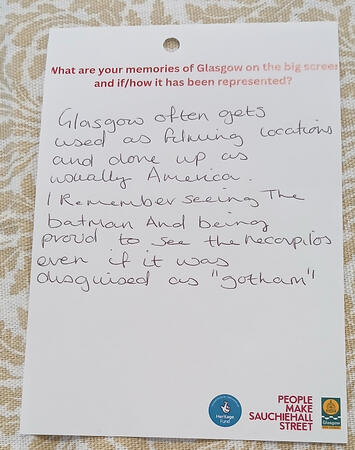 What are your memories of Glasgow on the big screen
and if/how it has been represented?
Glasgow often gets
used as filming locations
and done up as
usually America.
I Remember seeing The
batman And being
proud to see the necorpilos
even if it was
disguised as "gotham"
Heritage
Fund
PEOPLE
MAKE
SAUCHIEHALL
STREET
Glasgow